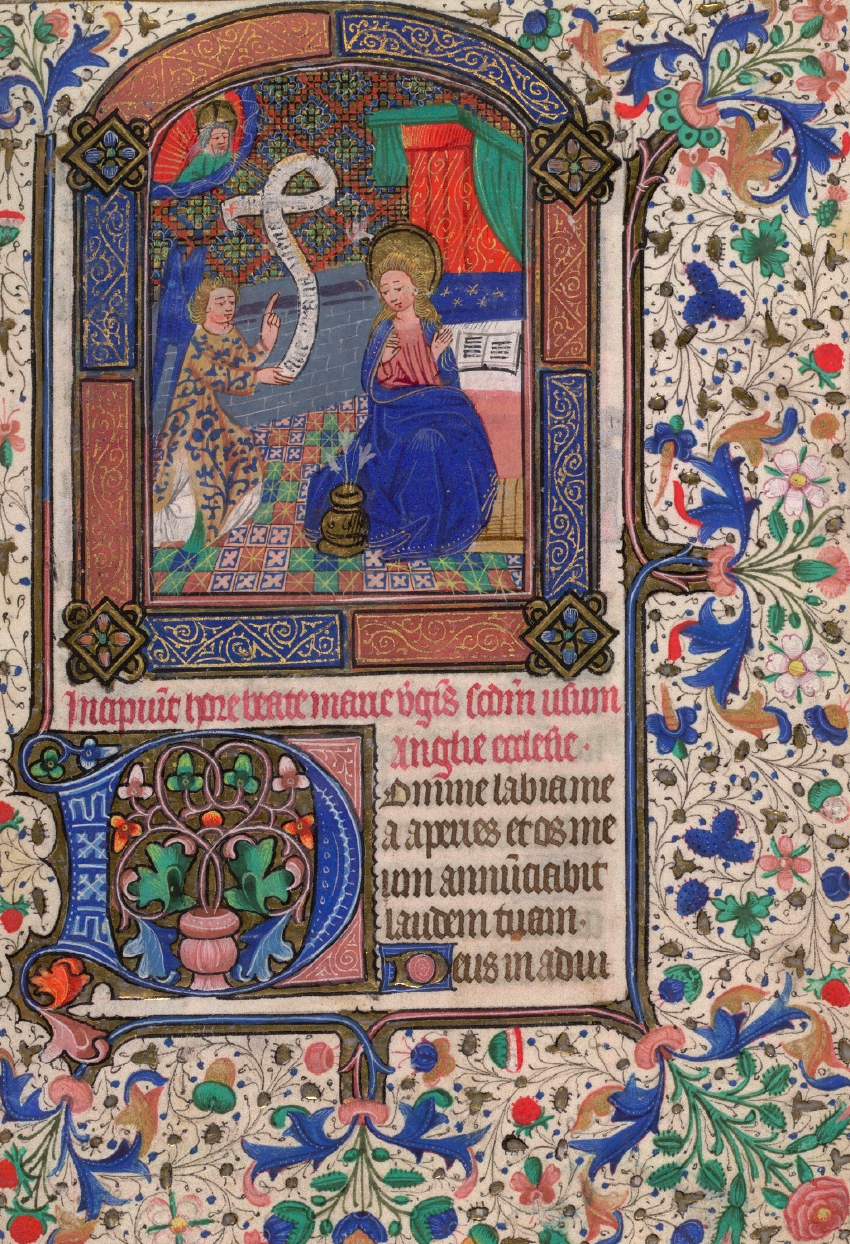 Incipiūt hore beate marie v̄gis scdm usum
Anglie ecclesie.
Domine labia me
a aperies et os me
um annūciabit
laudem tuam.
Deus in adiu